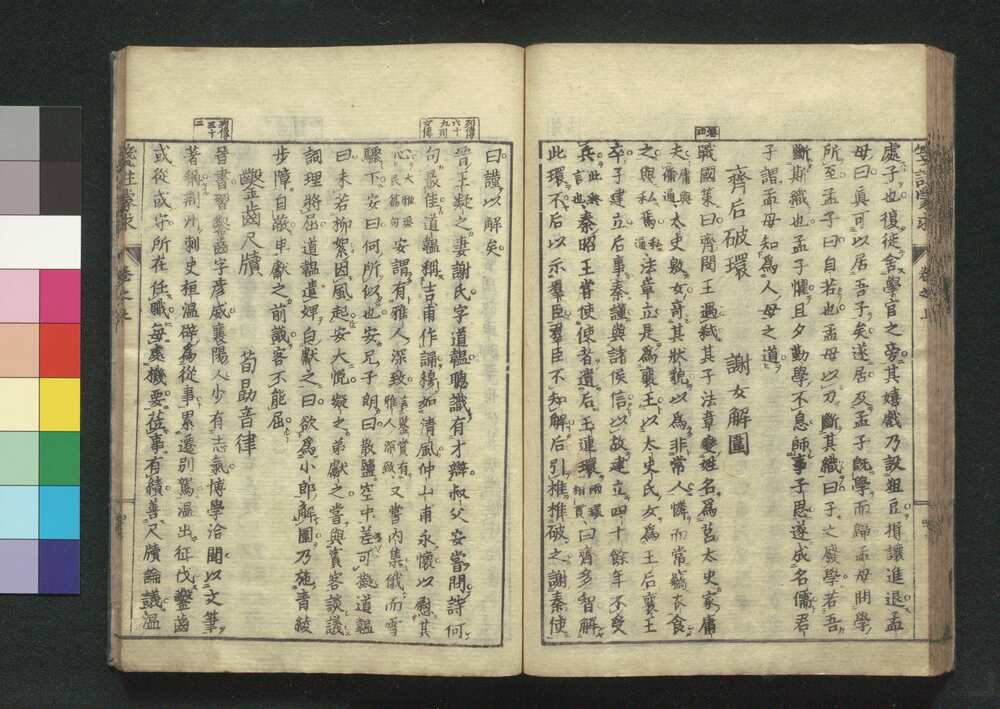 處子也復徙舍學官之旁其嬉戲乃設俎豆揖讓進退孟
母曰眞可以居吾子矣遂居及孟子旣學而歸孟母問學
所至孟子曰自若也孟母以刀斷其織曰子之廢學若吾
斷斯織也孟子懼旦夕勤學不息師事子思遂成名儒君
子謂孟母知爲人母之道
齊后破環 謝女解圍
戰國策曰齊閔王遇弑其子法章變姓名爲莒太史家庸
夫太史敫女奇其狀貌以爲非常人憐而常竊衣食
之與私焉法章立是爲襄王以太史氏女爲王后襄王
卒子建立后事秦謹與諸侯信以故建立四十餘年不受
兵秦昭王嘗使使者遺后王連環曰齊多智解
此環不后以示羣臣羣臣不知解后引椎椎破之謝秦使
曰謹以解矣
列傳六十六列女傳
晉王凝之妻謝氏字道韞聰識有才辯叔父安嘗問詩何
句最佳道韞稱吉甫作誦穆如淸風仲山甫永懷以慰其
心安謂有雅人深致又嘗內集俄而雪
驟下安曰何所似也安兄子朗曰散鹽空中差可擬道韞
曰未若柳絮因風起安大悅凝之弟獻之嘗與賓客談議
詞理將屈道韞遣婢白獻之曰欲爲小郎解圍乃施靑綾
步障自蔽申獻之前議客不能屈
鑿齒尺牘 荀勗音律
晉書習鑿齒字彥威襄陽人少有志氣博學洽聞以文筆
著稱荊州刺史桓溫辟爲從事累遷別駕溫出征伐鑿齒
或從或守所在任職每處機要莅事有績善尺牘論議溫